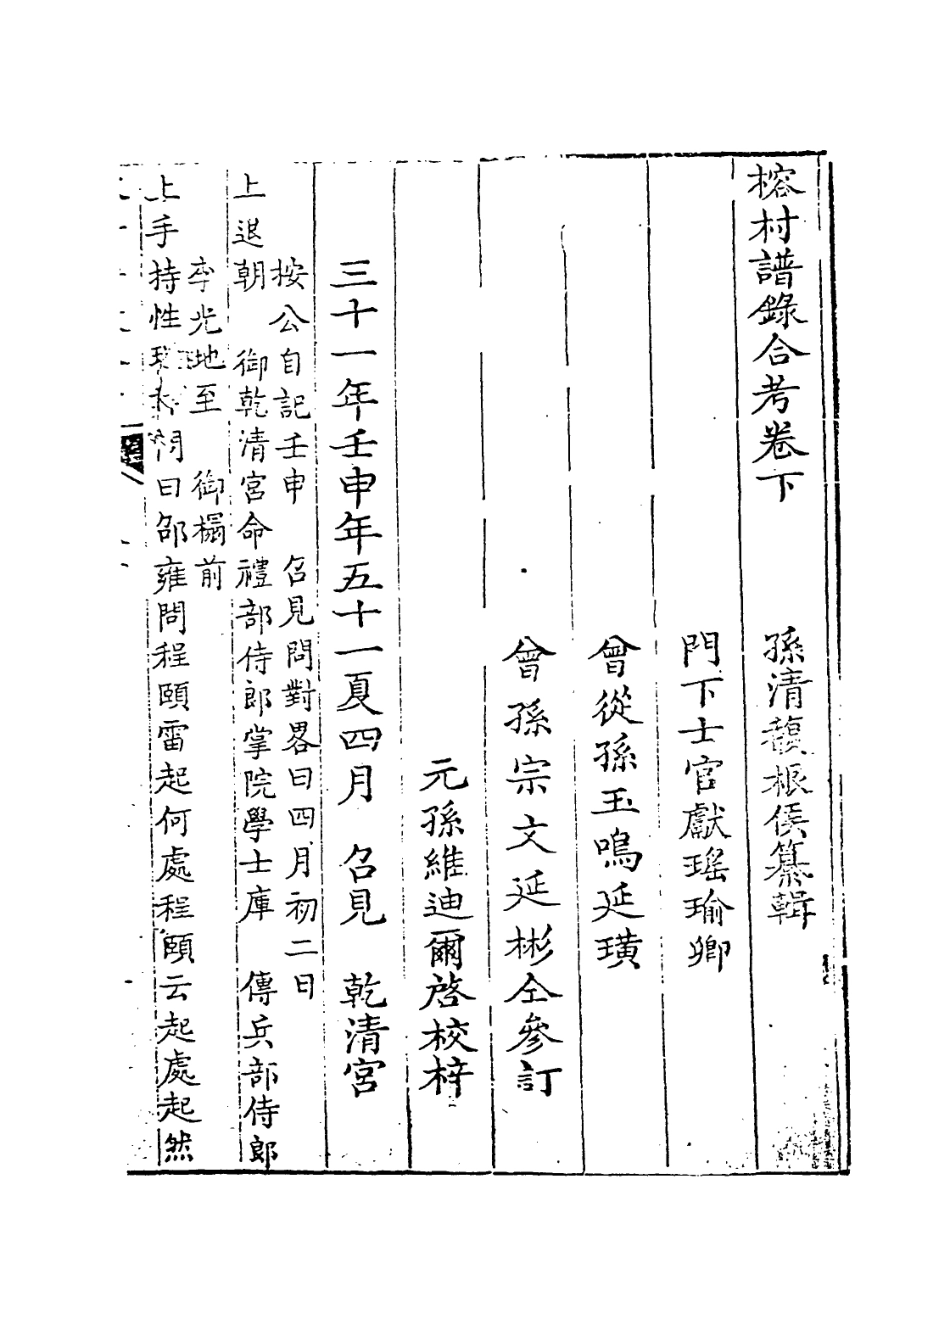 榕村譜錄合考卷下
孫清馥根侯纂輯
門下士官獻瑤瑜卿
曾從孫玉鳴延璜
曾孫宗文延彬仝參訂
元孫維迪爾啓校梓
三十一年壬申年五十一夏四月　召見　乾清宮
按公自記壬申　召見問對畧曰四月初二日
上退朝　御乾清宮命禮部侍郎掌院學士庫　傳兵部侍郎
李光地至　御榻前
上手持性　問曰邵雍問程頤雷起何處程頤云起處起然